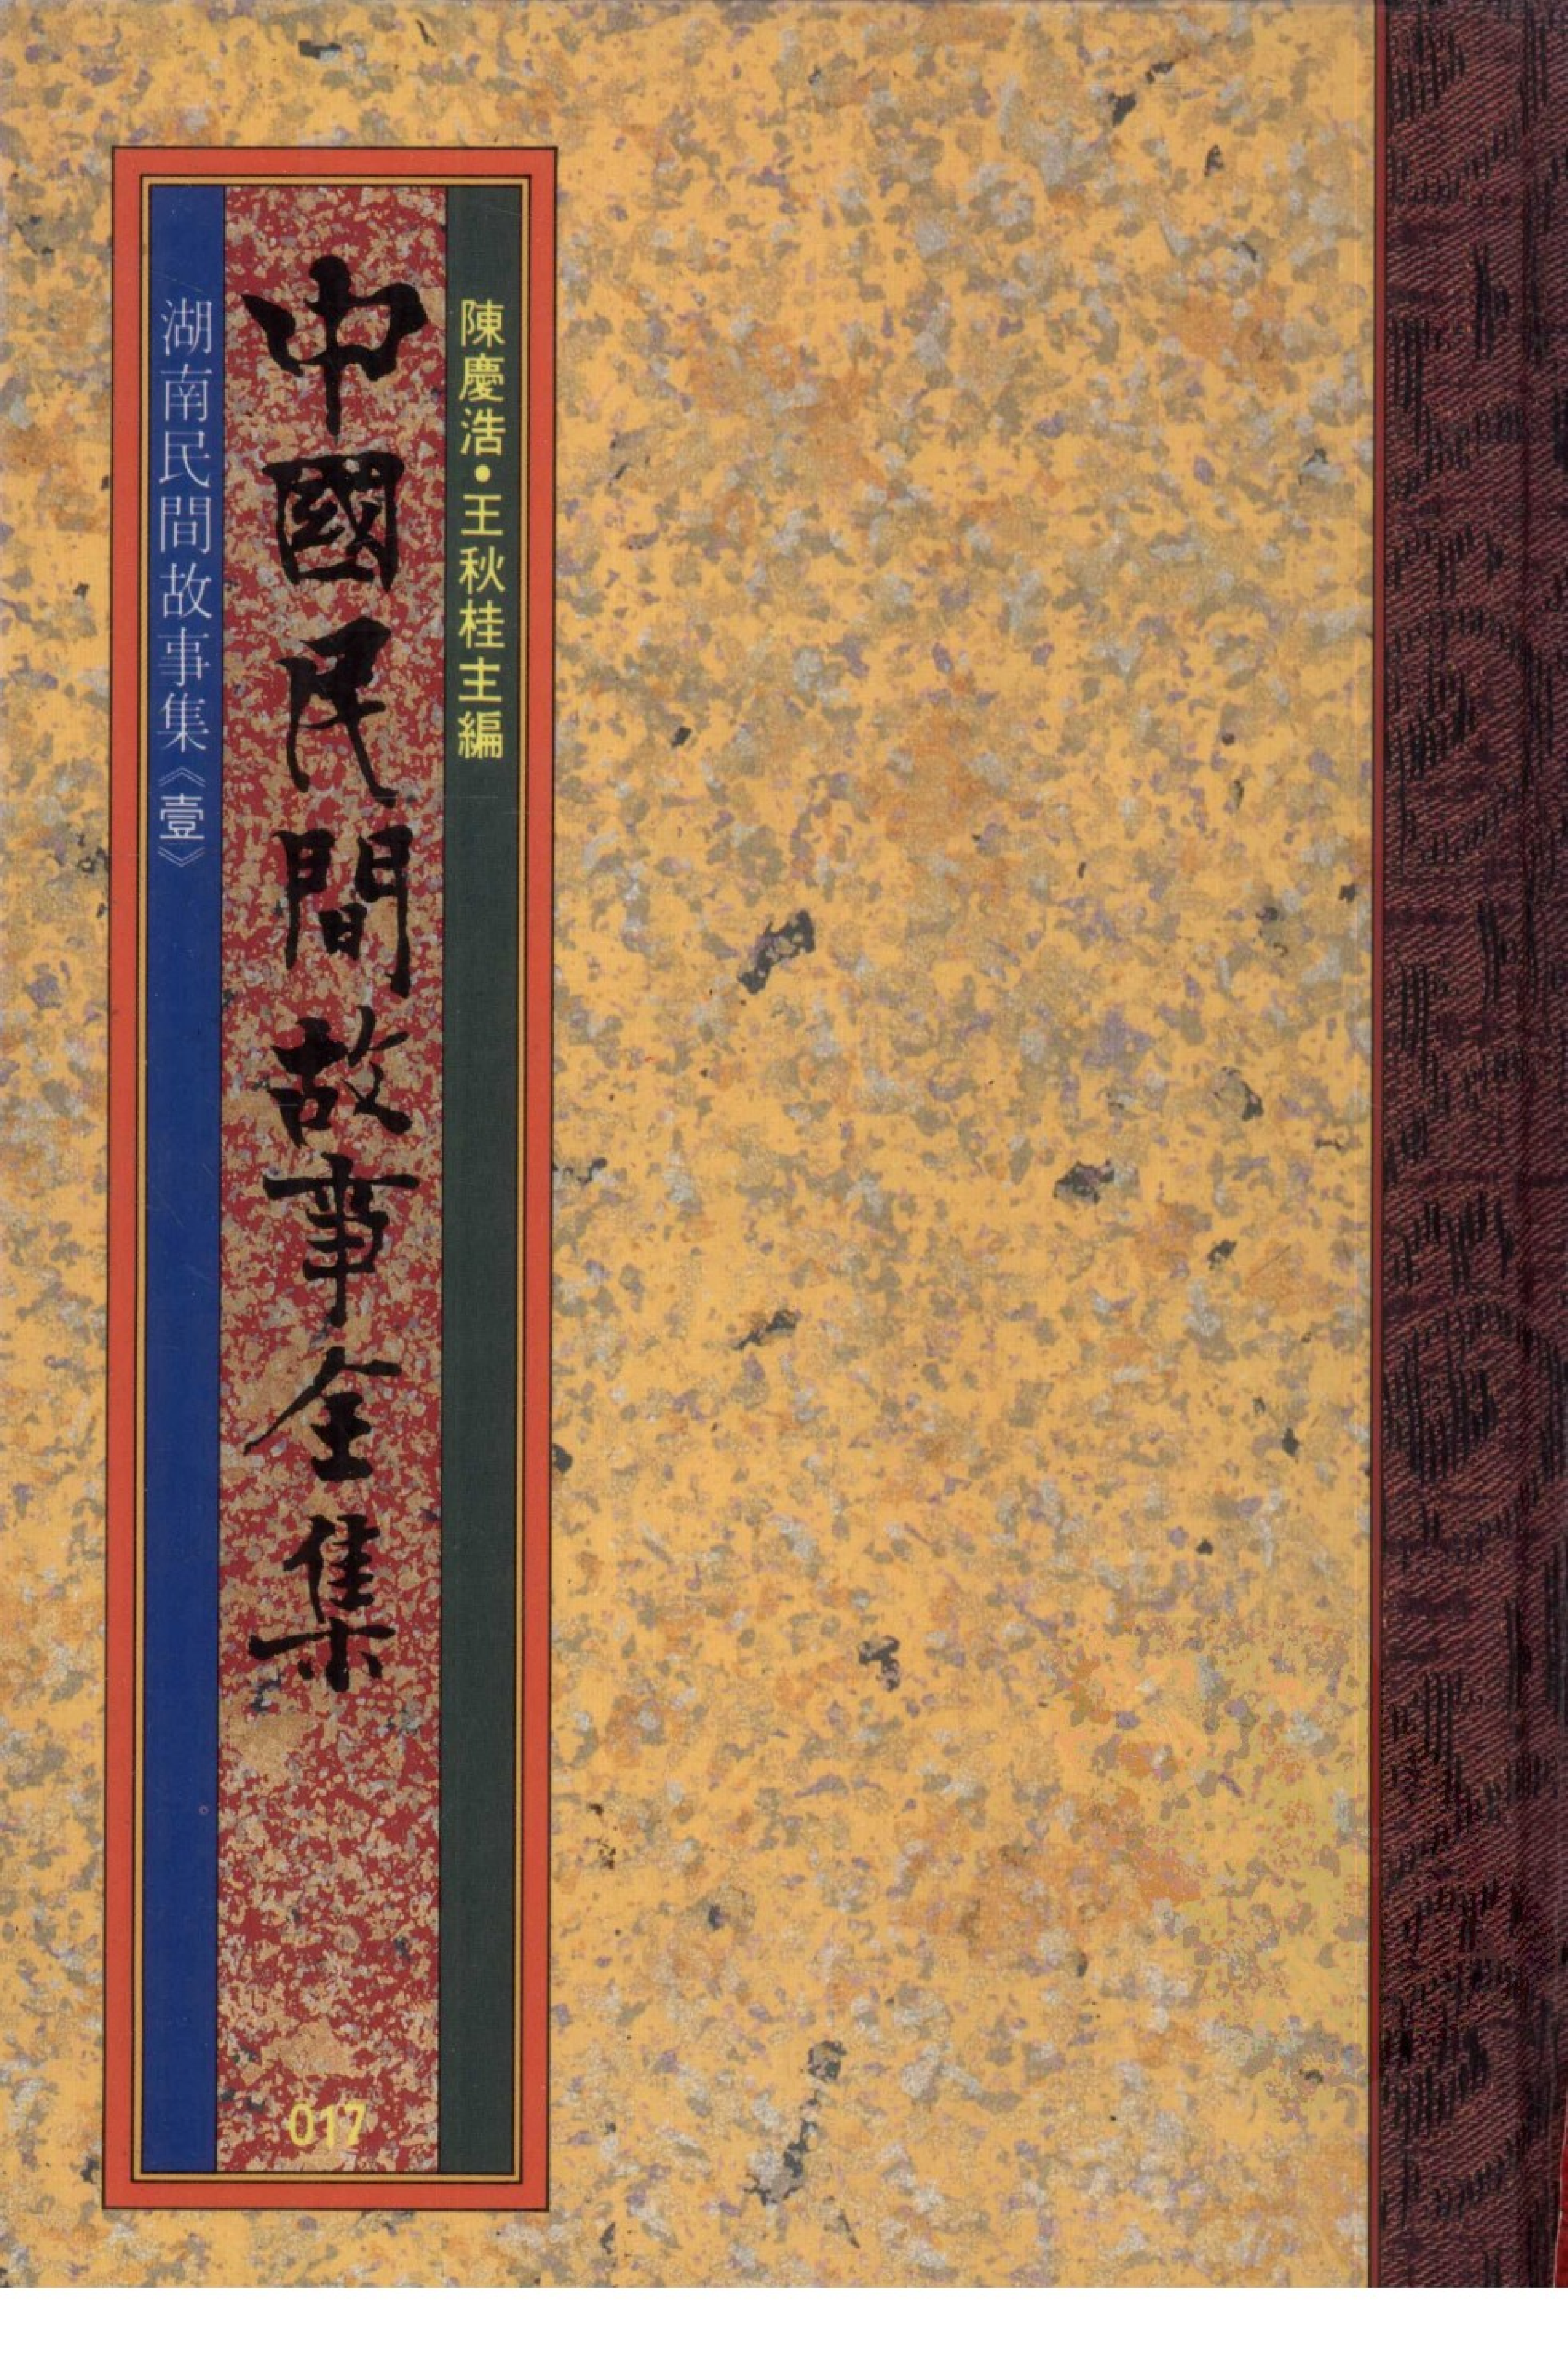 陳慶浩•王秋桂主編
中國民間故事全集
017
湖南民間故事集《壹》